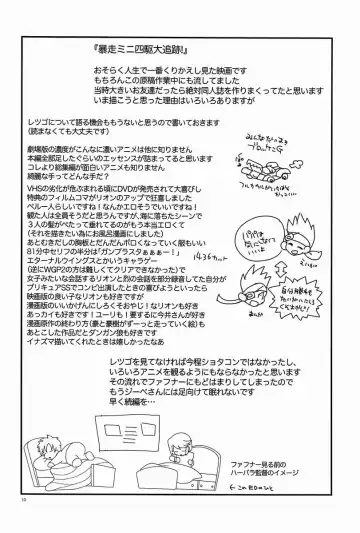 『暴走ミニ四駆大追跡!』
おそらく人生で一番くりかえし見た映画です
もちろんこの原稿作業中にも流してました
当時大きいお友達だったら絶対同人誌を作りまくってたと思います
いま描こうと思った理由はいろいろありますが
レツゴについて語る機会ももうないと思うので書いておきます
(読まなくても大丈夫です)
劇場版の濃度がこんなに濃いアニメは他に知りません
本編全部足したぐらいのエッセンスが詰まってると思います
コレより総集編が面白いアニメも知りません
綺麗な手ってどんな手だ!
VHSの劣化が危ぶまれる頃にDVDが発売されて大喜びし
特典のフィルムコマがリオンのアップで狂喜しました
ベルー人らしいですね!なんかエロそうでいいですね!
観た人は全員そうだと思うんですが、海に落ちたシーンで
3人の髪がぺたって垂れてるのがもう本当エロくて
(それを描きたい為にお風呂漫画にしました)
あとむきだしの胸板とだんだんボロくなっていく服もいい
81分中セリフの半分は「ガンブラスタぁぁぁー!」
エターナルウイングスとかいうキャラゲー
(逆にWGP2の方は難しくてクリアできなかった)で
女子みたいな会話するリオンと烈の会話を部分録音してた自分が
プリキュアSSでコンビ出演したときの喜びようといったら
映画版の良い子なリオンも好きですが
漫画版のいいかげんにしろくそおやじ!なリオンも好きです
あっカイも好きです!ユーリも!要するに今井さんが好き
漫画原作の終わり方(豪と豪樹がずーっと走っていく絵)も
あとこした作品だとダンガン狼も好きです
イナズマ描いてくれたときは嬉しかったなあ
レツゴを見てなければ今程ショタコンではなかったし、
いろいろアニメを観るようにもならなかったと思います
その流れでファフナーにもどはまりしてしまったので
もうジーベさんには足向けて眠れないです
早く続編を…
14.36カット
ファフナー見る前の
ハーバラ監督のイメージ
10